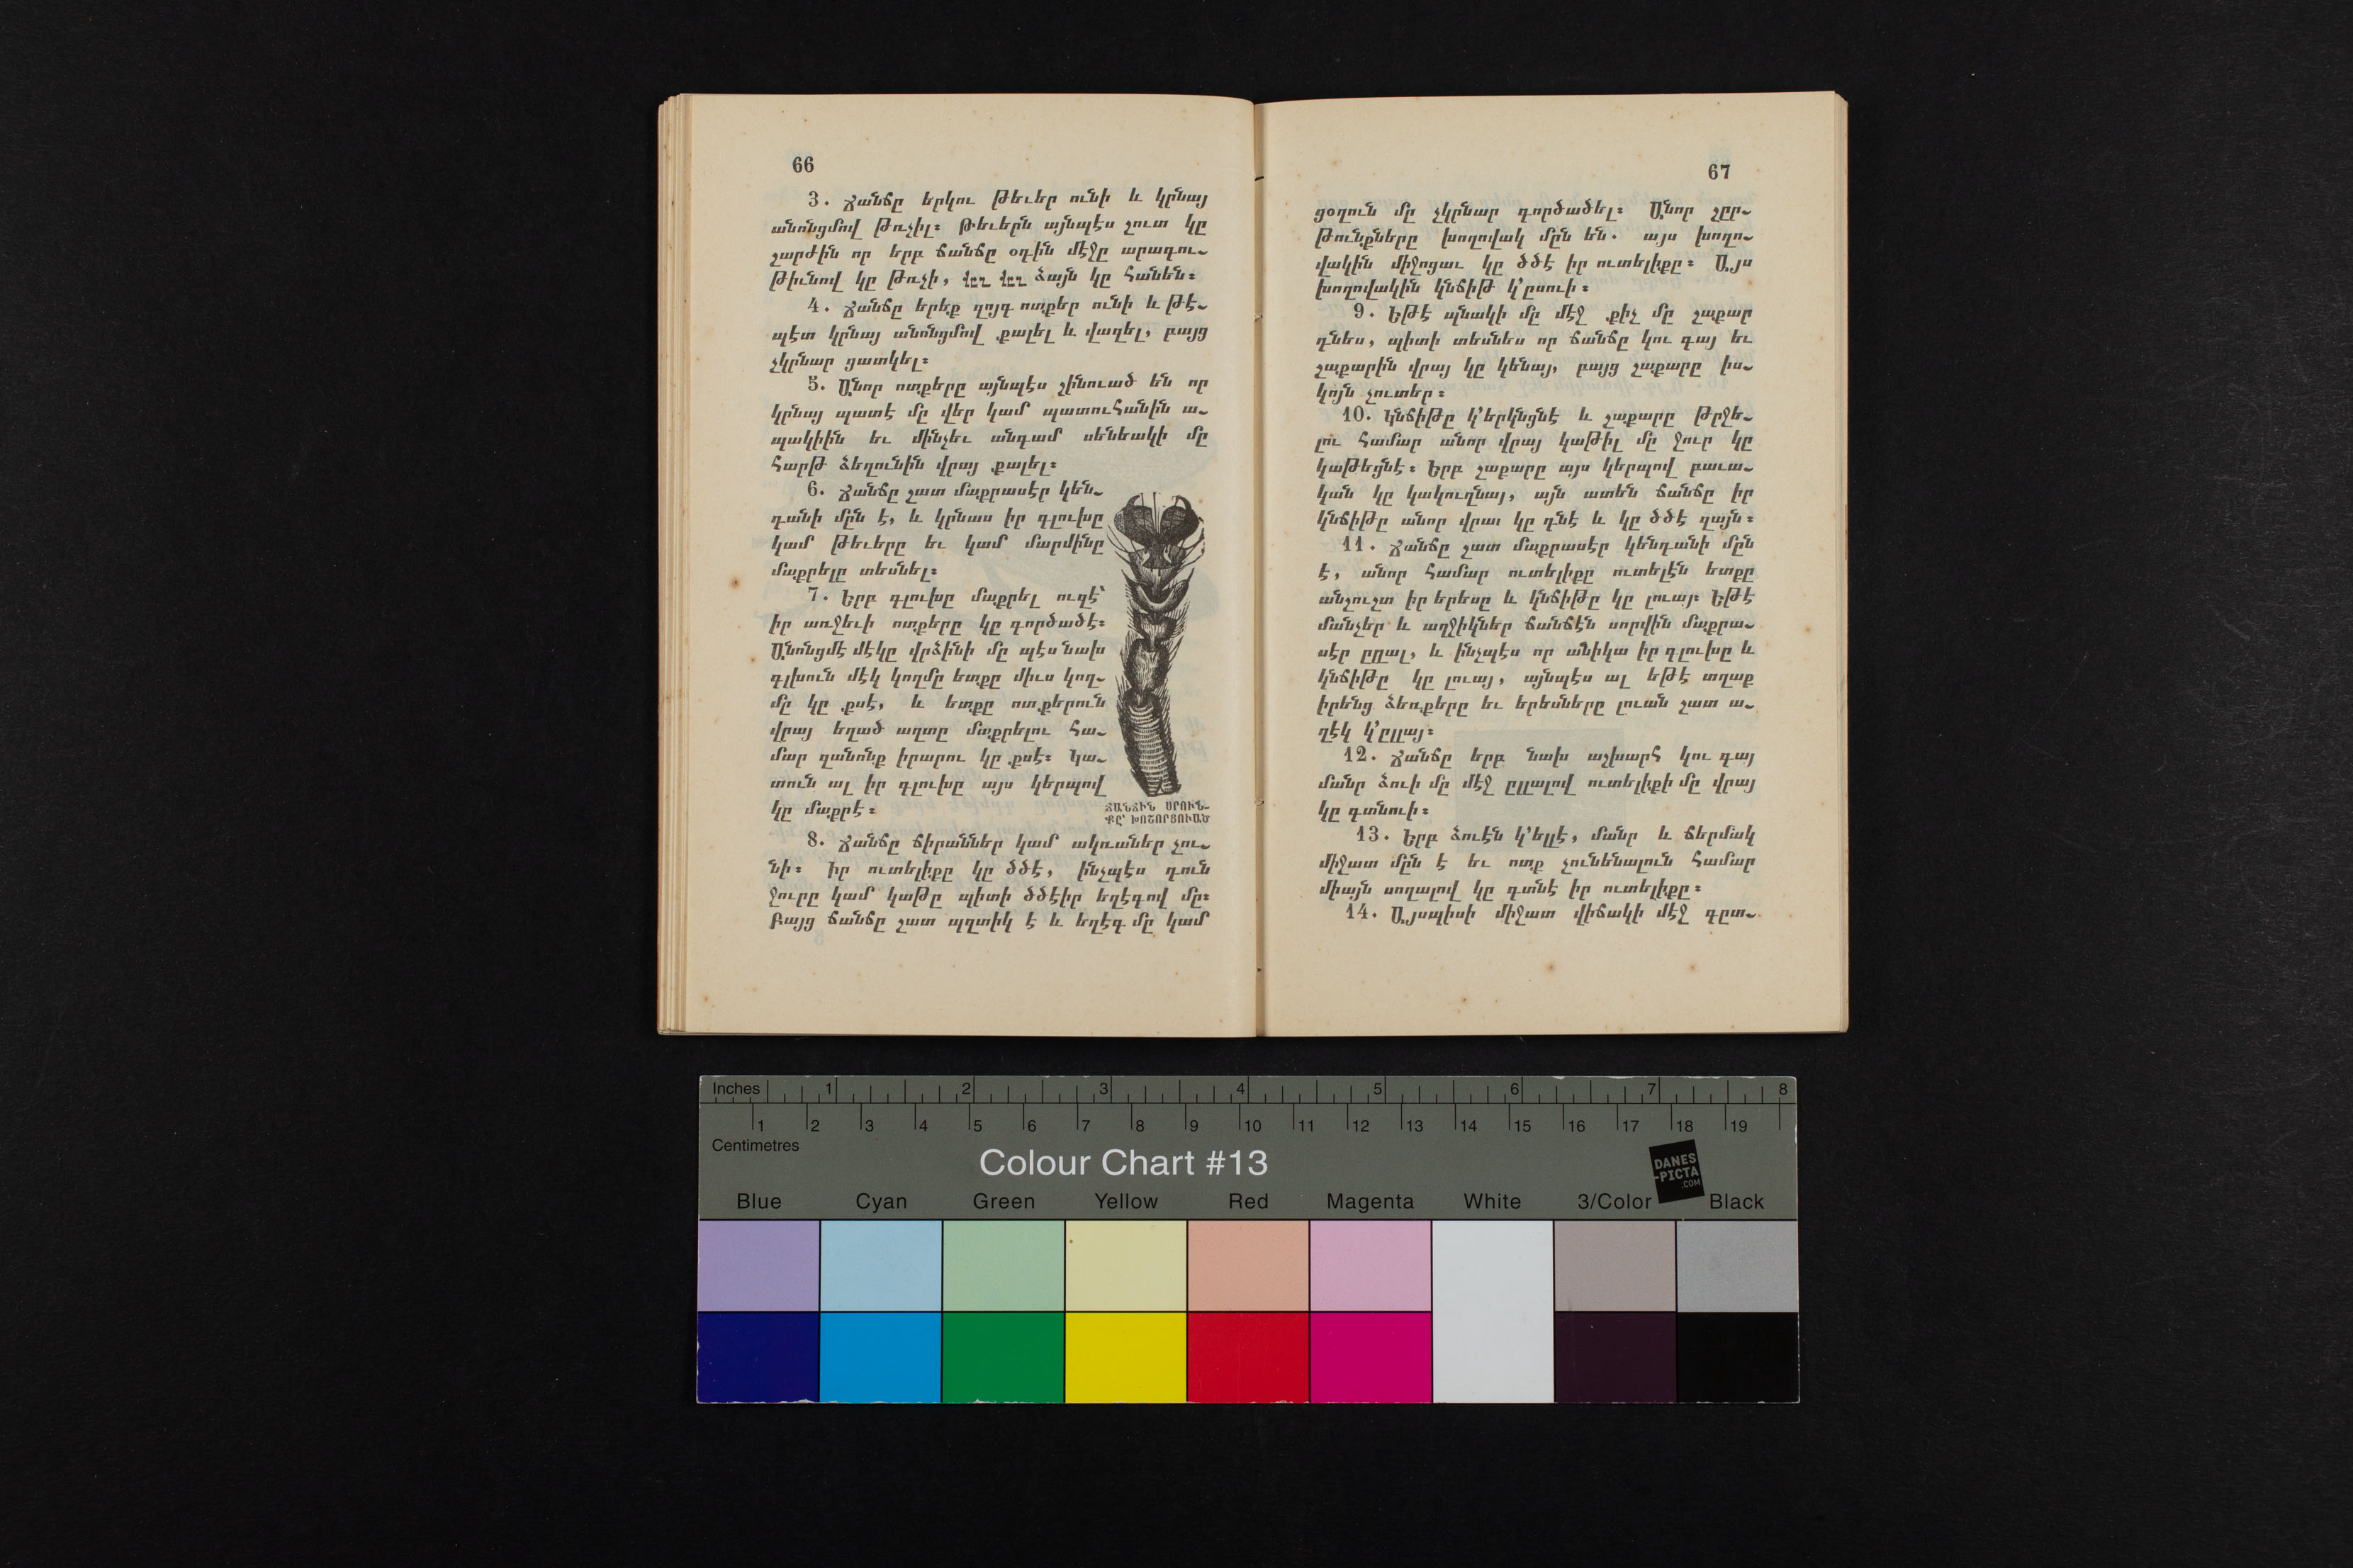 66
3. Ճանճը երկու թեւեր ունի և կրնայ
անոնցմով թռչիլ։ Թեւերն այնպէս շուտ կը
շարժին որ երբ ճանճը օդին մէջը արագու-
թիւնով կը թռչի, վըղ վըղ ձայն կը հանեն։
4. Ճանճը երեք զոյգ ոտքեր ունի և թէ-
պէտ կրնայ անոնցմով քալել և վազել, բայց
չկրնար ցատկել։
5. Անոր ոտքերը այնպէս շինուած են որ
կրնայ պատէ մը վեր կամ պատուհանին ա-
պակիին եւ մինչեւ անգամ սենեակի մը
հարթ ձեղունին վրայ քալել։
6. Ճանճը շատ մաքրասէր կեն-
դանի մըն է, և կրնաս իր գլուխը
կամ թեւերը եւ կամ մարմինը
մաքրելը տեսնել։
7. Երբ գլուխը մաքրել ուզէ՝
իր առջեւի ոտքերը կը գործածէ։
Անոնցմէ մէկը վրձինի մը պէս նախ
գլխուն մէկ կողմը ետքը միւս կող-
մը կը քսէ, և ետքը ոտքերուն
վրայ եղած աղտը մաքրելու հա-
մար զանոնք իրարու կը քսէ։ Կա-
տուն ալ իր գլուխը այս կերպով
կը մաքրէ։
ՃԱՆՃԻՆ ՍՐՈՒՆ-
ՔԸ՝ ԽՈՇՈՐՑՈՒԱԾ
8. Ճանճը ճիրաններ կամ ակռաներ չու-
նի։ Իր ուտելիքը կը ծծէ, ինչպէս դուն
ջուրը կամ կաթը պիտի ծծէիր եղէգով մը։
Բայց ճանճը շատ պզտիկ է և եղէգ մը կամ
67
ցօղուն մը չկրնար գործածել։ Անոր շըր-
թունքները խողովակ մըն են. այս խողո-
վակին միջոցաւ կը ծծէ իր ուտելիքը։ Այս
խողովակին կնճիթ կ՚ըսուի։
9. Եթէ պնակի մը մէջ քիչ մը շաքար
դնես, պիտի տեսնես որ ճանճը կու գայ եւ
շաքարին վրայ կը կենայ, բայց շաքարը իս-
կոյն չուտեր։
10. Կնճիթը կ՚երկնցնէ և շաքարը թրջե-
լու համար անոր վրայ կաթիլ մը ջուր կը
կաթեցնէ։ Երբ շաքարը այս կերպով բաւա-
կան կը կակուղնայ, այն ատեն ճանճը իր
կնճիթը անոր վրայ կը դնէ և կը ծծէ զայն։
11. Ճանճը շատ մաքրասէր կենդանի մըն
է, անոր համար ուտելիքը ուտելէն ետքը
անշուշտ իր երեսը և կնճիթը կը լուայ։ Եթէ
մանչեր և աղջիկներ ճանճէն սորվին մաքրա-
սէր ըլլալ, և ինչպէս որ անիկա իր գլուխը և
կնճիթը կը լուայ, այնպէս ալ եթէ տղաք
իրենց ձեռքերը եւ երեսները լուան շատ ա-
ղէկ կ՚ըլլայ։
12. Ճանճը երբ նախ աշխարհ կու գայ
մանր ձուի մը մէջ ըլլալով ուտելիքի մը վրայ
կը գտնուի։
13. Երբ ձուէն կ՚ելլէ, մանր և ճերմակ
միջատ մըն է եւ ոտք չունենալուն համար
միայն սողալով կը գտնէ իր ուտելիքը։
14. Այսպիսի միջատ վիճակի մէջ գըտ-
Inches 1 2 3 4 5 6 7 8
1 2 3 4 5 6 7 8 9 10 11 12 13 14 15 16 17 18 19
Centimetres
Colour Chart #13
DANES
-PICTA
.COM
Blue Cyan Green Yellow Red Magenta White 3/Color Black